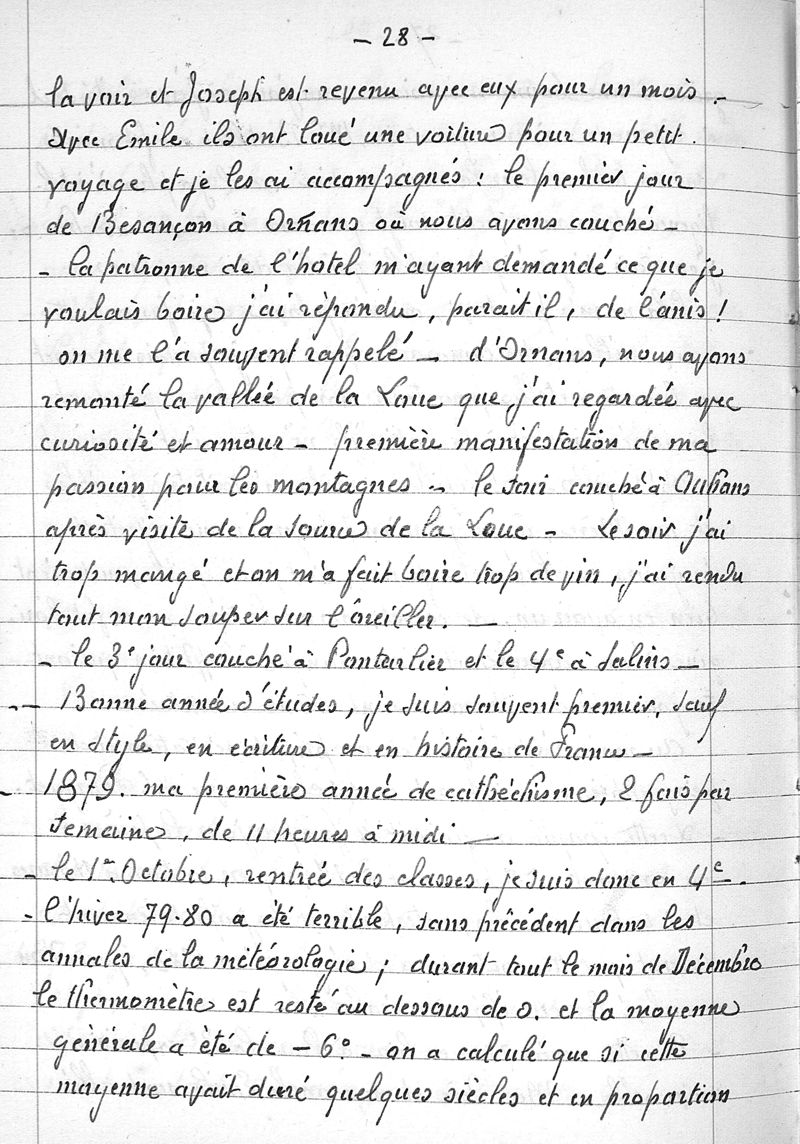 - 28 -
la voir et Joseph est revenu avec eux pour un mois -
Avec Emile ils ont loué une voiture pour un petit
voyage et je les ai accompagnés : le premier jour
de Besançon à Ornans où nous avons couché -
- la patronne de l'hotel m'ayant demandé ce que je
voulais boire j'ai répondu, parait il, de l'anis !
on me l'a souvent rappelé - d'Ornans, nous avons
remonté la vallée de la Loue que j'ai regardée avec
curiosité et amour - première manifestation de ma
passion pour les montagnes - le soir couché à Ouhans
après visite de la source de la Loue - Le soir j'ai
trop mangé et on m'a fait boire trop de vin, j'ai rendu
tout mon souper sur l'oreiller. -
- le 3e jour couché à Pontarlier et le 4e à Salins -
- Bonne année d'études, je suis souvent premier, sauf
en style, en écriture et en histoire de France -
- 1879. ma première année de cathéchisme, 2 fois par
semaine, de 11 heures à midi -
- le 1er Octobre, rentrée des classes, je suis donc en 4e.
- l'hiver 79-80 a été terrible, sans précédent dans les
annales de la météorologie ; durant tout le mois de Décembre
le thermomètre est resté au dessous de 0. et la moyenne
générale a été de - 6° - on a calculé que si cette
moyenne avait duré quelques siècles et en proportion